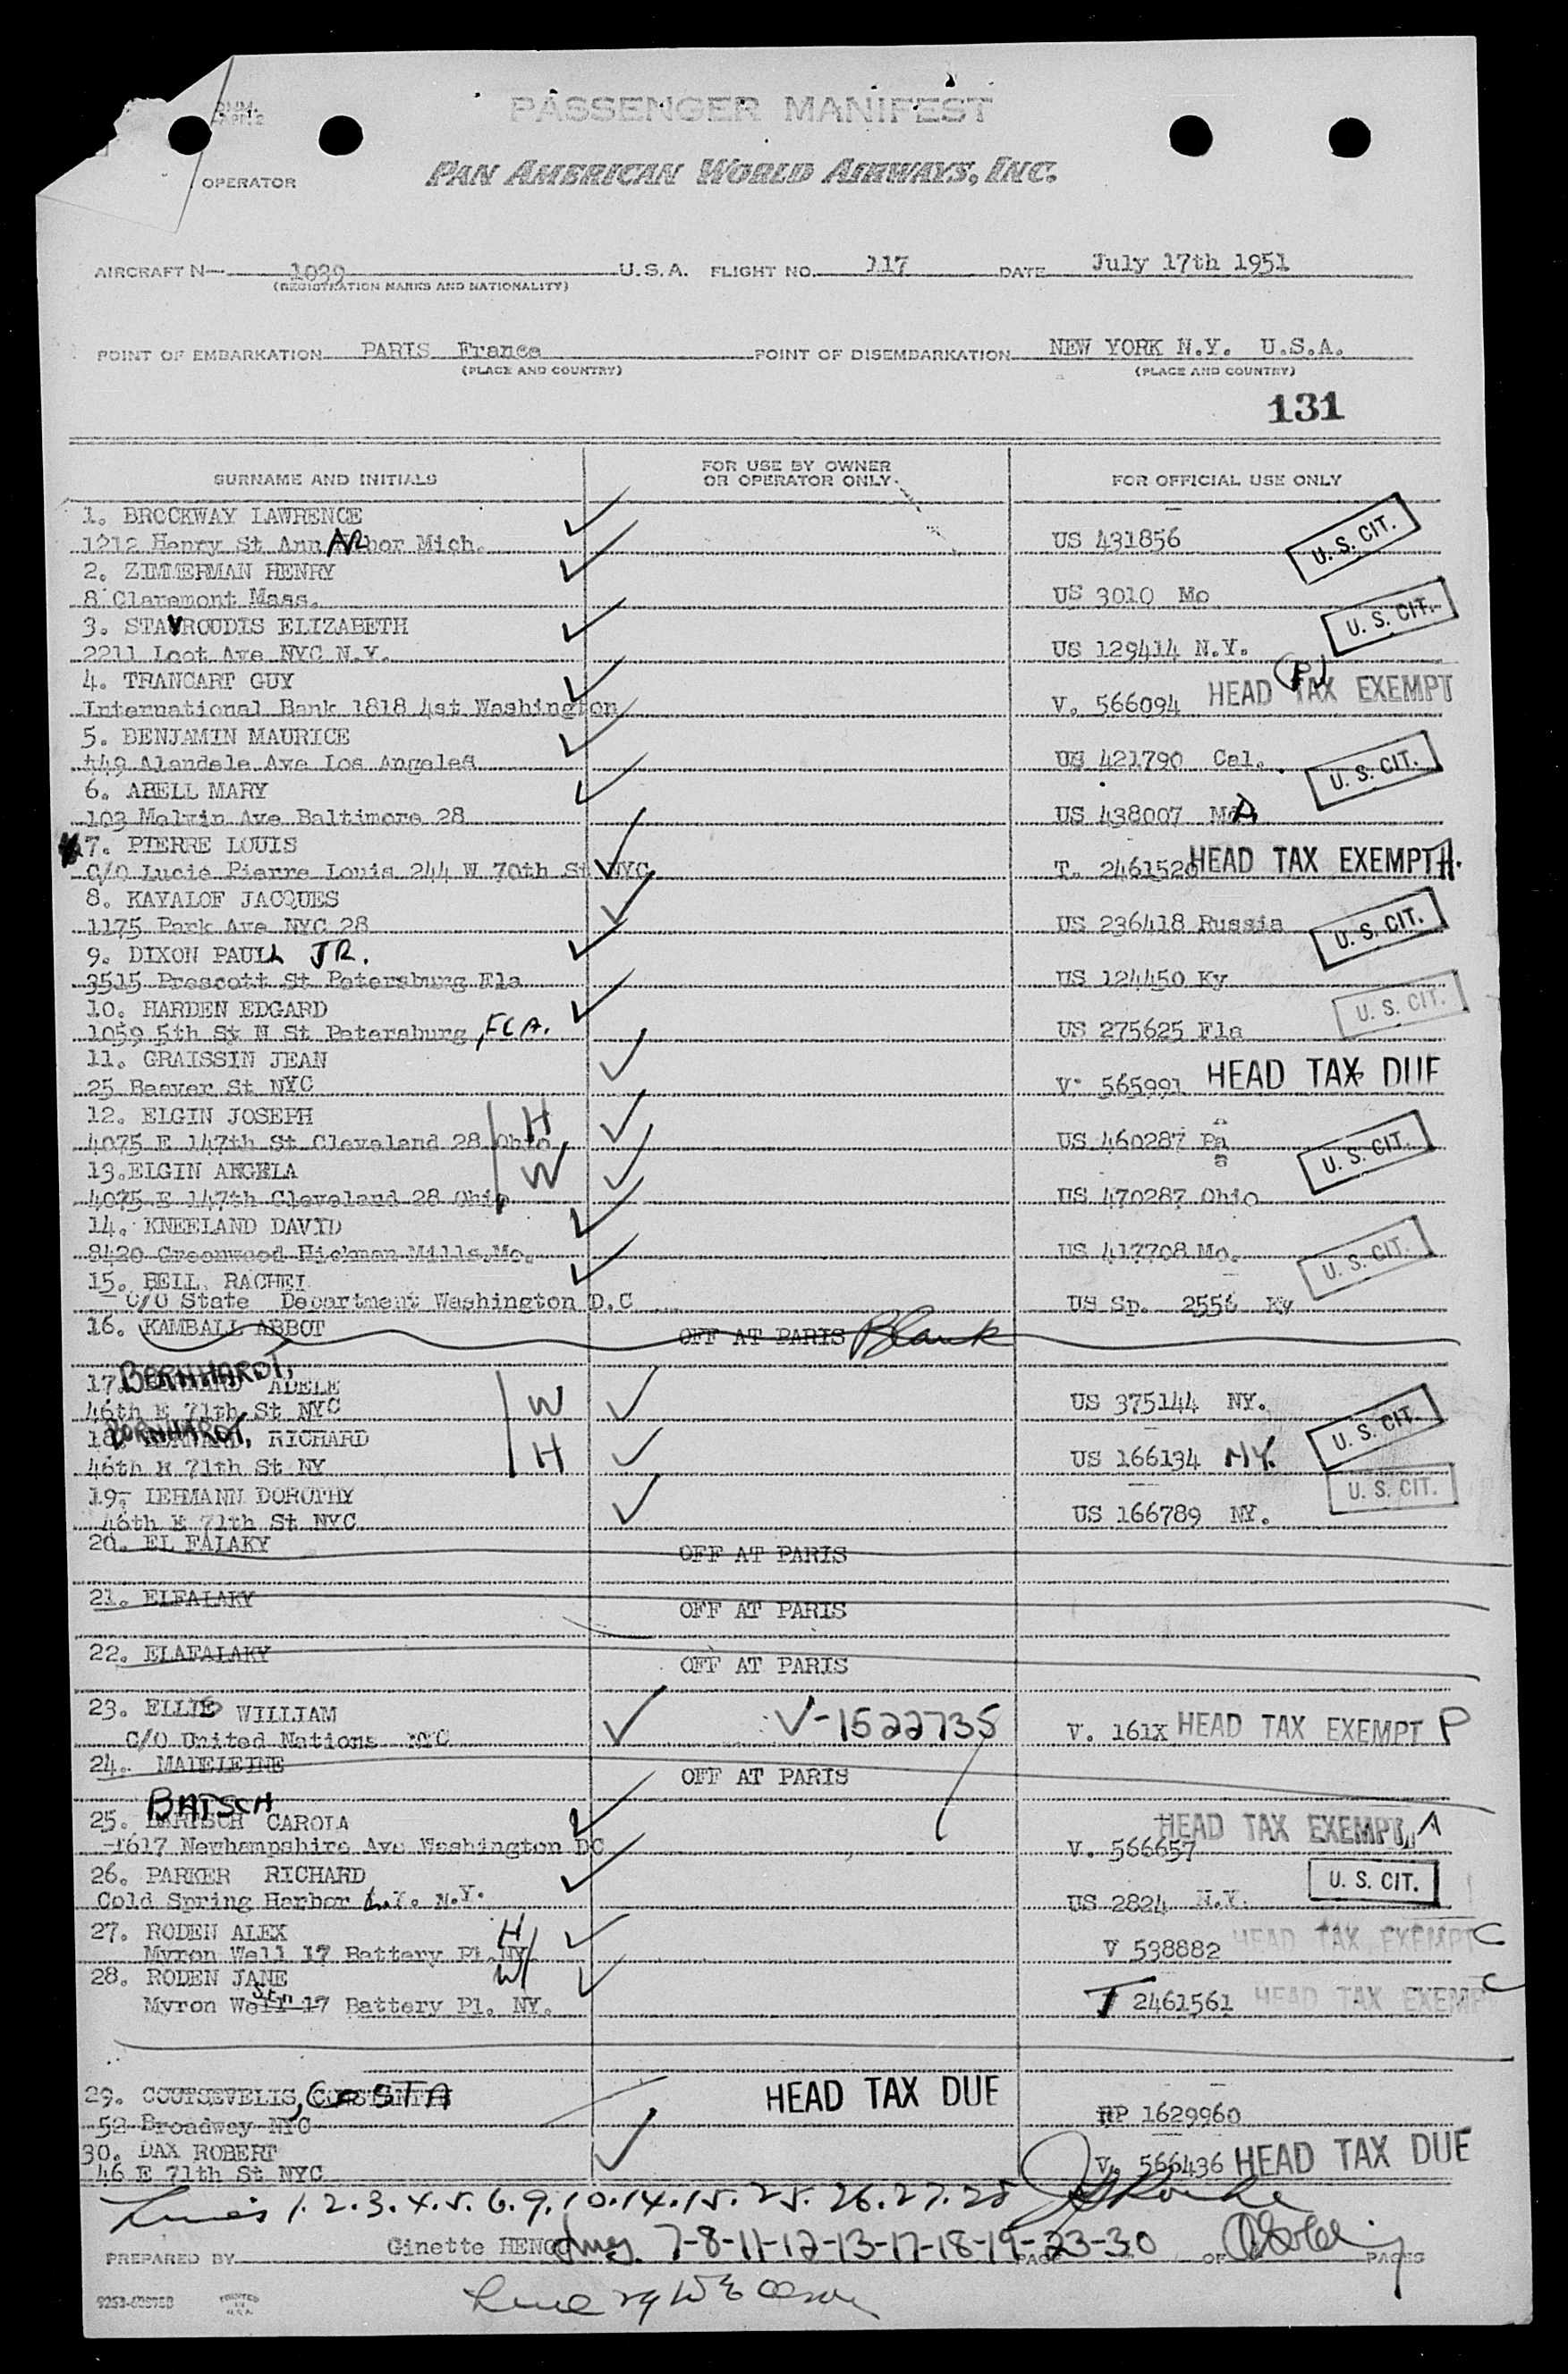 PASSENGER MANIFEST
OPERATOR PAN AMERICAN WORLD AIRWAYS, INC.
AIRCRAFT N— 1039 U.S.A. FLIGHT NO. 117 DATE July 17th 1951
(REGISTRATION MARKS AND NATIONALITY)
POINT OF EMBARKATION PARIS France POINT OF DISEMBARKATION NEW YORK N.Y. U.S.A.
(PLACE AND COUNTRY) (PLACE AND COUNTRY)
131
SURNAME AND INITIALS FOR USE BY OWNER OR OPERATOR ONLY. FOR OFFICIAL USE ONLY
1. BROCKWAY LAWRENCE
1212 Henry St Ann ARbor Mich. US 431856 U. S. CIT.
2. ZIMMERMAN HENRY
8 Claremont Mass. US 3010 Mo
3. STAVROUDIS ELIZABETH U. S. CIT.
2211 Loot Ave NYC N.Y. US 129414 N.Y.
4. TRANCART GUY (P)
International Bank 1818 4st Washington V. 566094 HEAD TAX EXEMPT
5. BENJAMIN MAURICE
449 Alandele Ave Los Angeles US 421790 Cal. U. S. CIT.
6. ABELL MARY
103 Melvin Ave Baltimore 28 US 438007 MD
7. PIERRE LOUIS
C/O Lucie Pierre Louis 244 W 70th St NYC T. 2461520 HEAD TAX EXEMPT A.
8. KAYALOF JACQUES
1175 Park Ave NYC 28 US 236418 Russia U. S. CIT.
9. DIXON PAUL JR.
3515 Prescott St Petersburg Fla US 124450 Ky
10. HARDEN EDGARD U. S. CIT.
1059 5th St N St Petersburg, FLA. US 275625 Fla
11. GRAISSIN JEAN
25 Beaver St NYC V. 565991 HEAD TAX DUE
12. ELGIN JOSEPH H
4075 E 147th St Cleveland 28 Ohio US 460287 Pa U. S. CIT.
13.ELGIN ANGELA W
4075 E 147th Cleveland 28 Ohio US 470287 Ohio
14. KNEELAND DAVID
8420 Greenwood Hickman Mills.Mo. US 417708 Mo. U. S. CIT.
15. BELL RACHEL
C/O State Department Washington D.C US Sp. 2556 Ky
16. KAMBALL ABBOT OFF AT PARIS Blank
BERNHARDT,
17. ADELE W
46th E 71th St NYC US 375144 NY.
BERNHARDT,
18. RICHARD H U. S. CIT.
46th E 71th St NY US 166134 NY.
19. LEHMANN DOROTHY U. S. CIT.
46th E 71th St NYC US 166789 NY.
20. EL FALAKY OFF AT PARIS
21. ELFALAKY OFF AT PARIS
22. ELAFALAKY OFF AT PARIS
23. ELLIS WILLIAM V-1522735
C/O United Nations NYC V. 161X HEAD TAX EXEMPT P
24. MADELEINE OFF AT PARIS
BATSCH
25. CAROLA HEAD TAX EXEMPT A
1617 Newhampshire Ave Washington DC V. 566657
26. PARKER RICHARD U. S. CIT.
Cold Spring Harbor L.I. N.Y. US 2824 N.Y.
27. RODEN ALEX H
Myron Well 17 Battery Pl. NY V 538882 HEAD TAX EXEMPT C
28. RODEN JANE W
Myron Well 17 Battery Pl. NY. T 2461561 HEAD TAX EXEMPT C
29. COUTSEVELIS, COSTA HEAD TAX DUE
52 Broadway NYC RP 1629960
30. DAX ROBERT
46 E 71th St NYC V. 566436 HEAD TAX DUE
Lines 1.2.3.4.5.6.9.10.14.15.25.26.27.28
PREPARED BY Ginette 7-8-11-12-13-17-18-19-23-30 PAGE OF PAGES
Line 29
PRINTED IN U.S.A.